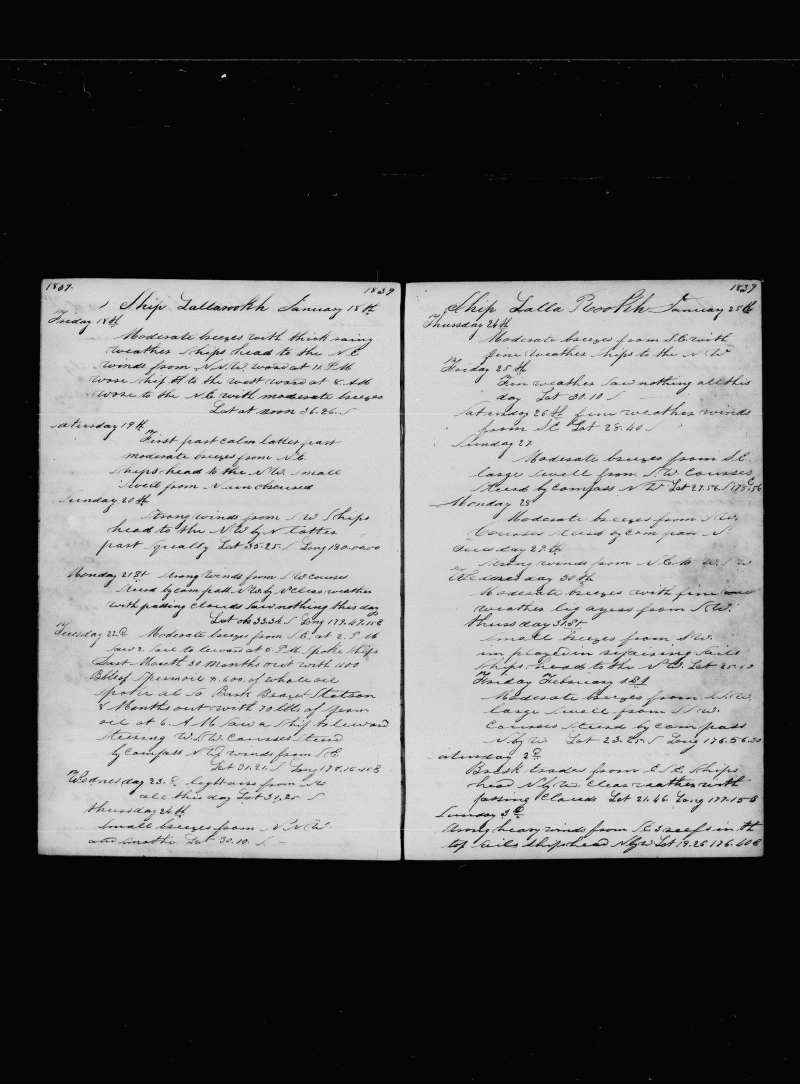 1839 1839
Ship Lallarookh January 18th
Friday 18th
Moderate breezes with thick rainy
weather Ships head to the N E
winds from N.N.W. ward at 11 P M
wore ship to the west ward at 8 A M
wore to the N E with moderate breezes
Lat at noon 36.26 S
Saturday 19th
First part calm latter part
moderate breezes from N E
Ships head to the N W Small
Swell from N unobscured
Sunday 20th
Strong winds from S W Ships
head to the N W by N latter
part Squally Lat 35.25 S Long 180.00.00
Monday 21st Strong Winds from S W courses
Steerd by compass N W by N Clear weather
with passing clouds Saw nothing this day
Lat 33.34 S Long 179.47.15 E
Tuesday 22d Moderate breezes from S.E. at 2 P M
Saw 2 Sail to leward at 6 P M Spoke Ships
31 Months out with 1100
Bbls of Sperm oil & 600 of whale oil
Spoke al So Bark Stetson
8 Months out with 70 bbls of sperm
oil at 6 A M Saw a Ship to leward
Steering W S W. Courses Steerd
by Compass N W winds from S E
Lat 31.21 S Long 178.16.45 E
Wednesday 23d light airs from
all this day Lat 31.25 S
thursday 24th
Small breezes from N.N.W.
Lat 30.10 S
1839
Ship Lalla Rookh January 25th
Thursday 24th
Moderate breezes from S.E with
fine weather Ships to the N W
Friday 25th
Fine weather Saw nothing all this
day Lat 30.10 S
Saturday 26th fine weather winds
from S E Lat 28.40 S
Sunday 27
Moderate breezes from S.E.
large Swell from S W. Courses
Steerd by compass N W Lat 27.56 S
Monday 28
Moderate breezes from S W.
Courses Steerd by com pass N
Tuesday 29th
Strong winds from S.E. to W.S W
Wednesday 30th
Moderate breezes with fine
weather from S W.
thursday 31st
Small breezes from S W.
im ployed in repairing Sails
Ships head to the N W. Lat 25.10
Friday February 1st
Moderate breezes from S.S.W.
large Swell from S S W.
Courses Steerd by compass
N by W Lat 23.25 S Long 176.56.30
Saturday 2d
Brisk trades from E S E Ships
head N by W. Clear weather with
passing Clouds Lat 21.46 Long 177.15 E
Sunday 3d
Strong heavy winds from S E 3 reefs in th
top Sails Ship head N by W Lat 19.26 176.40 E